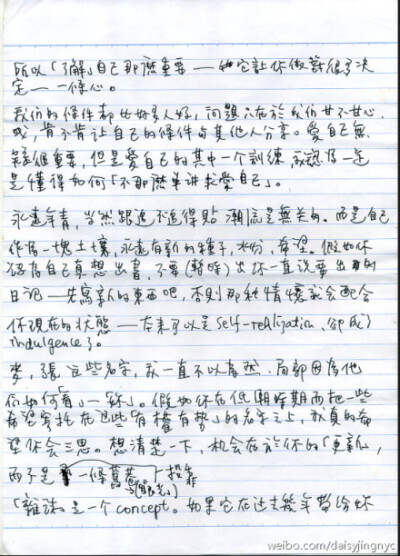 所以「了解」自己那麽重要——它让你做許很多决
定——一條心。
我们的條件都比好多人好，问題只在於我们甘不甘心
或，肯不肯让自己的條件与其他人分享。愛自己無
疑很重要，但是愛自己的其中一个訓練，就説一定
是懂得如何「不那麽單講求愛自己」。
永遠年青，当然跟追不追得貼潮流是無关的。而是自己
作為一塊土壤，永遠有新的種子，水份，希望。假如你
自己真想出書，不要(暫時)出你一直説要出的
日记——先寫新的東西吧，否則那种情懷就会配合
你現在的状態——本來可以是self-realization，卻成了
indulgence了。
麥，張 這些名字，我一直不以為然，
们如何「有一套」。假如你在低潮時期而把一些
希望寄托在這些「有權有势」的名字之上，我真的希
望你会三思。想清楚一下，机会在於你的「更新」，
而不是 一條舊 投靠
(眼光)
「誰」是一个concept。如果它在过去幾年帶给你
weibo.com/daisyjingnyc